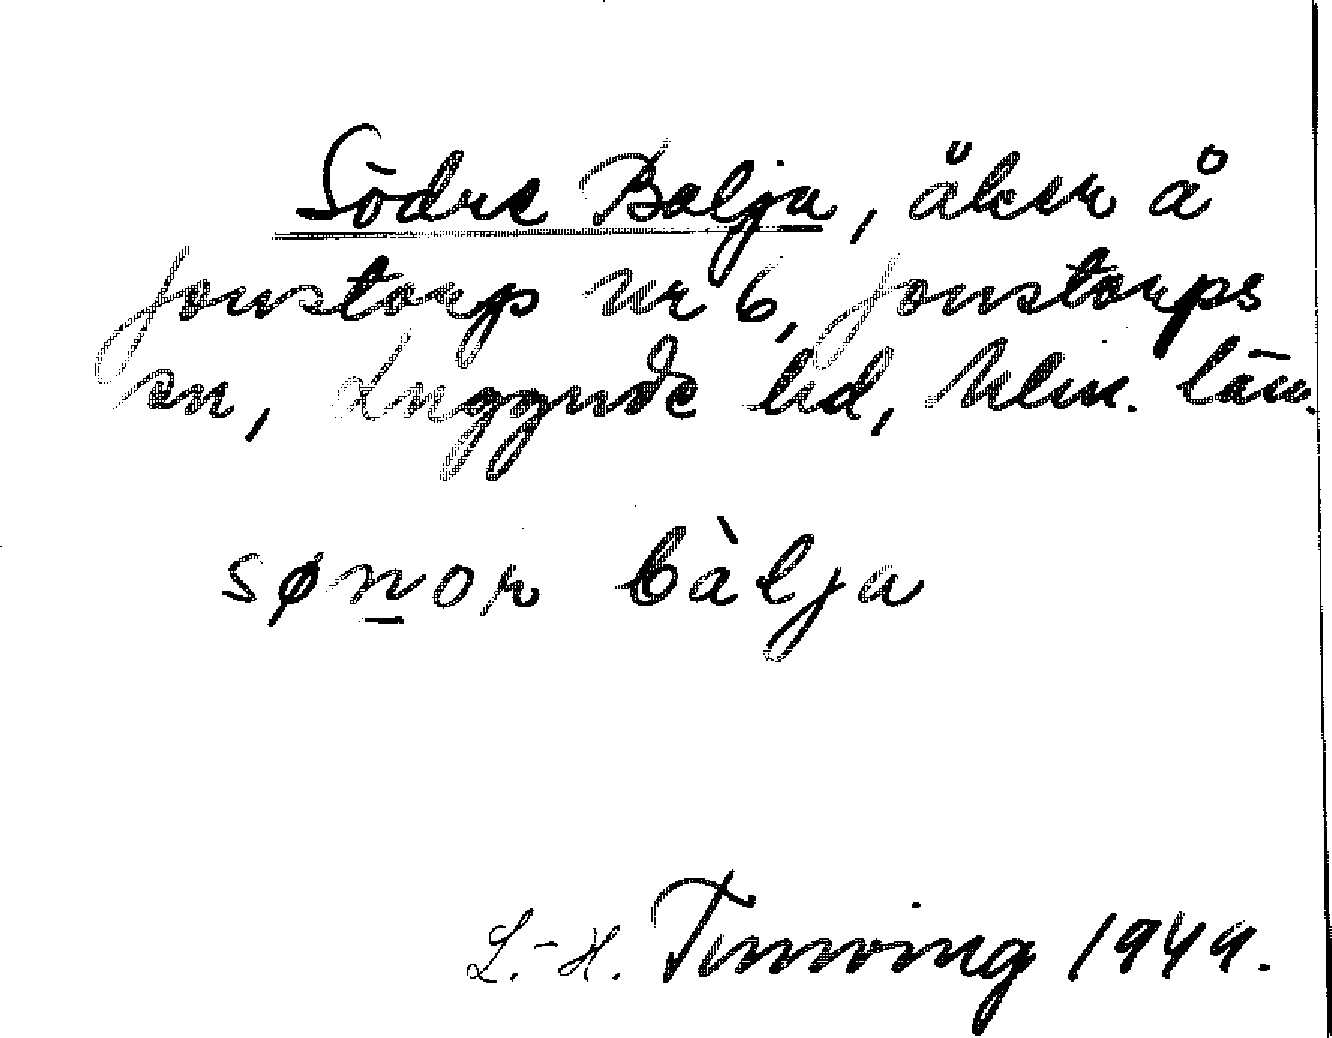 Södre Balja, åker å
Jonstorp nr 6, Jonstorps
sn, Luggude hd, Mlm. län.
sønor bàlja
L.-H. 1949.